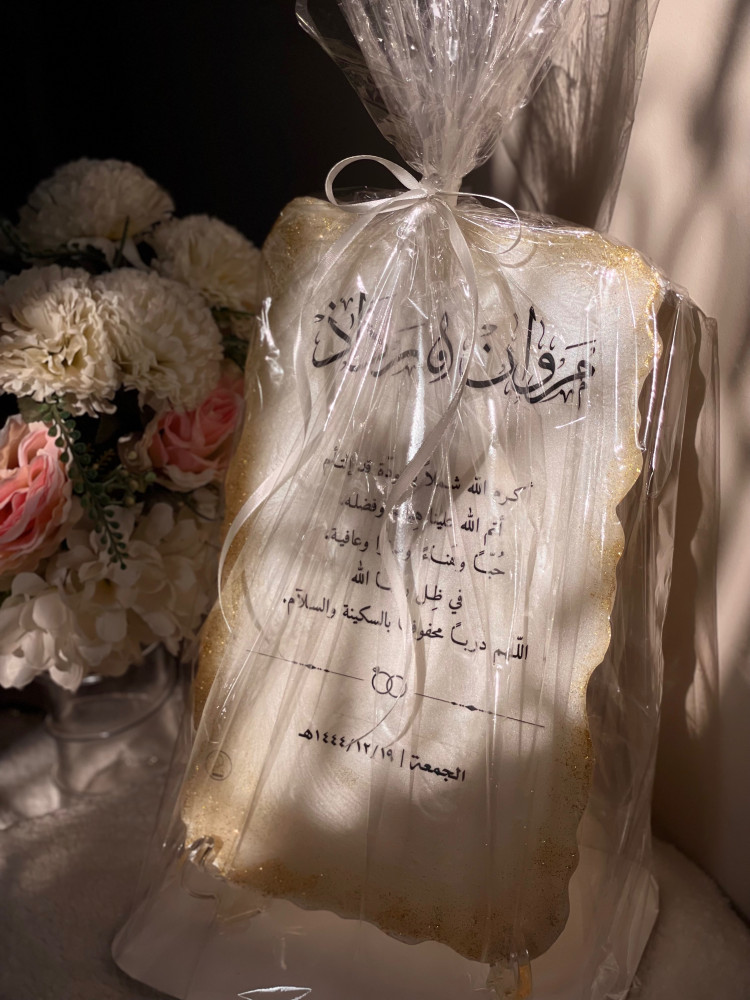 مروان و رغد
أكرم الله شملاً بمودّة قد إلتأم
أتم الله علينا وفضله.
حُبًّا وهَناءً وعافية.
في ظِل الله
اللّهم دربـًا محفوفـًا بالسكينة والسلآم.
الجمعة | ١٤٤٤/١٢/١٩هـ